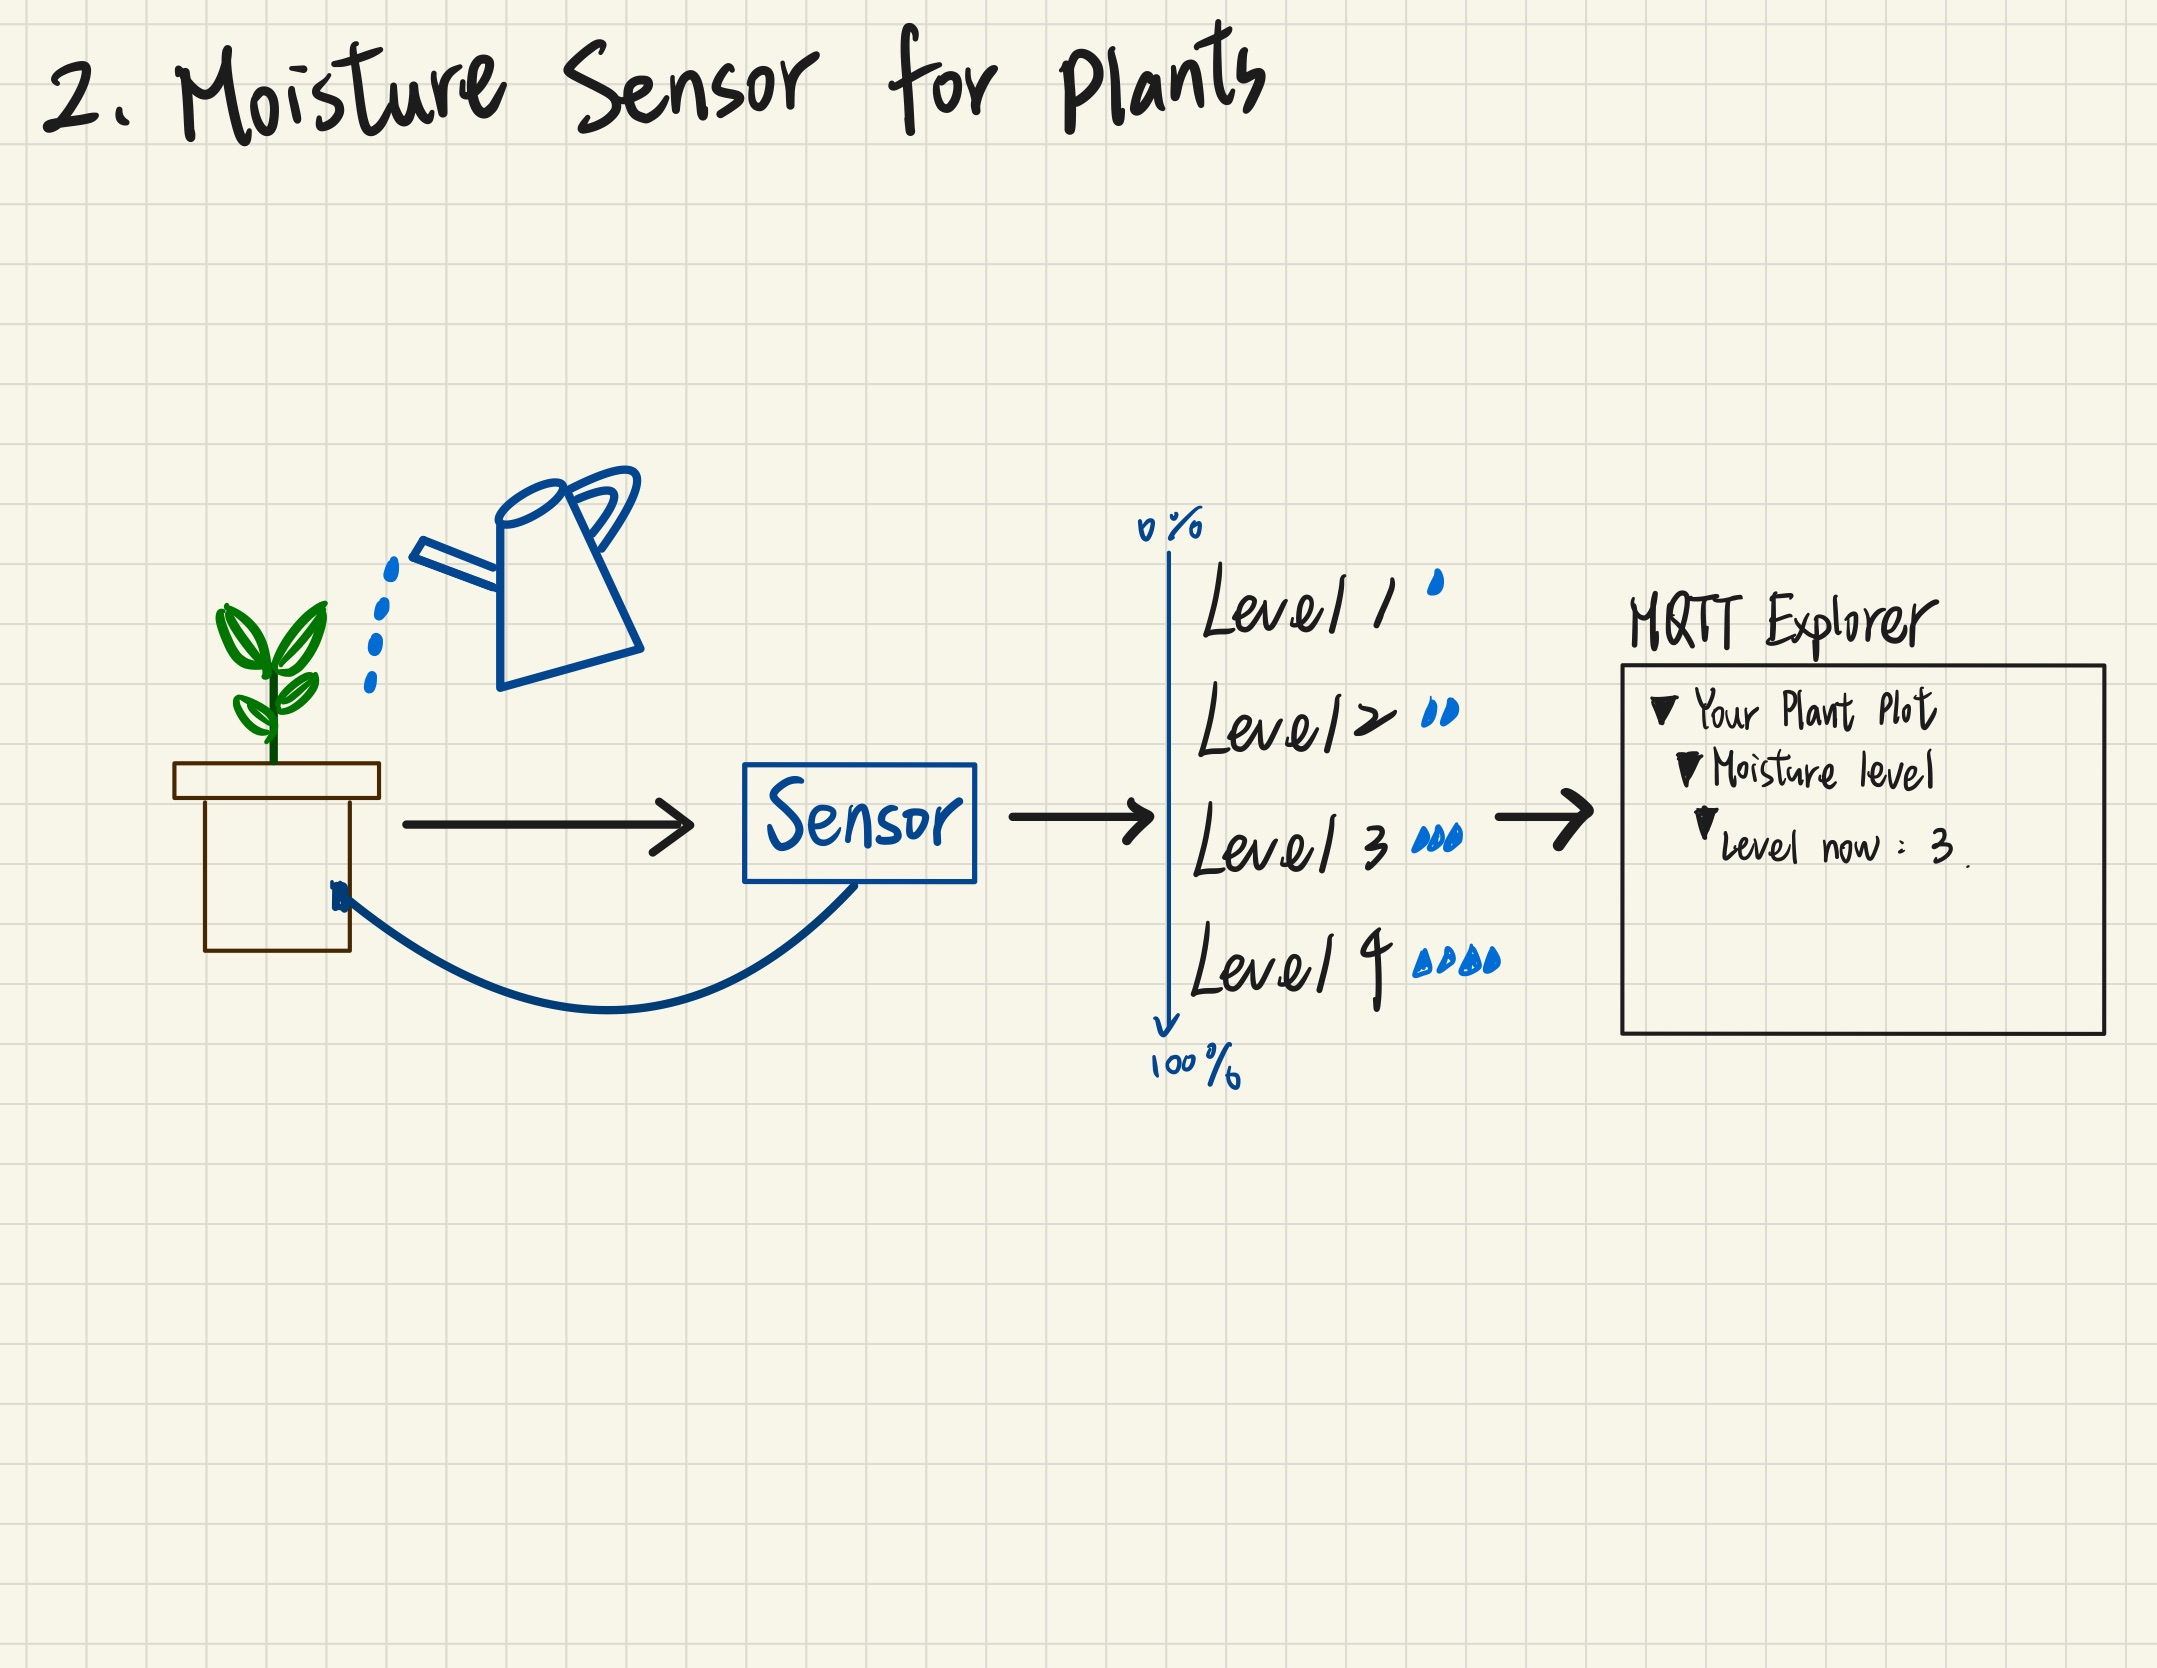 2. Moisture Sensor for Plants
Sensor
0%
Level 1
Level 2
Level 3
Level 4
100%
MQTT Explorer
Your Plant Plot
Moisture level
Level now: 3.